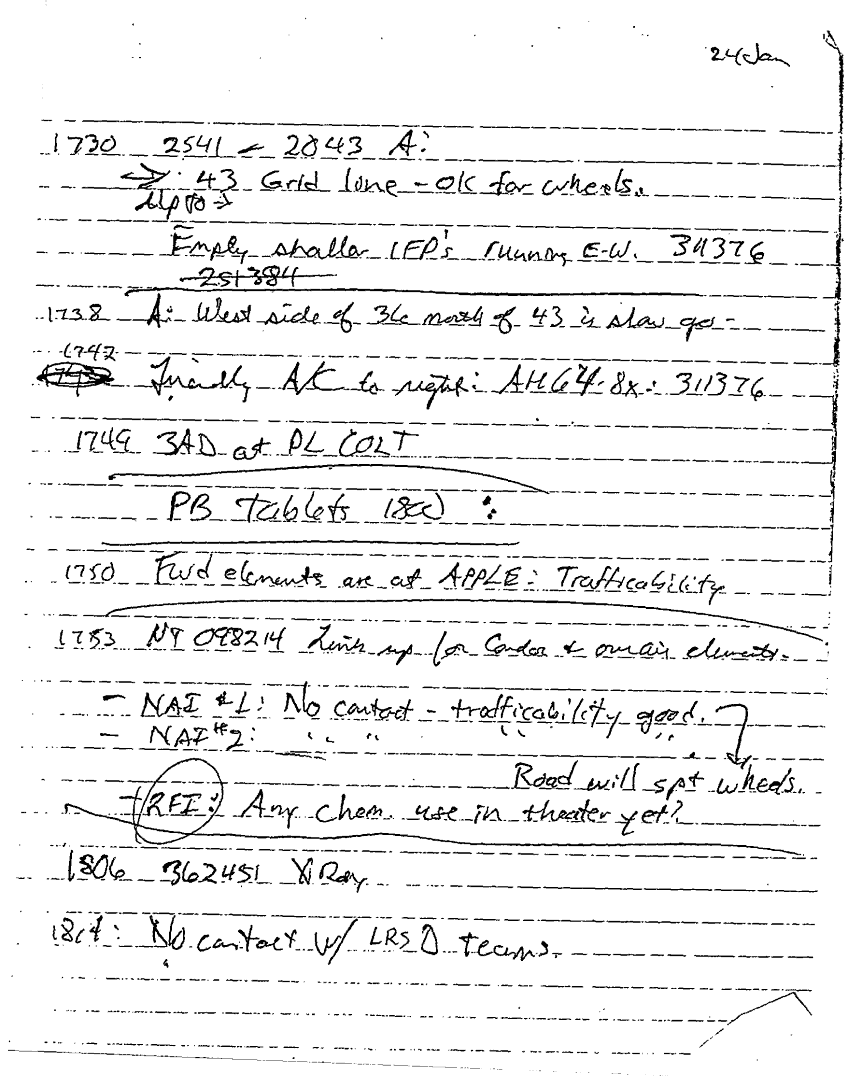 24 Jan
1730 2541 - 2843 A:
→ 43 Grid line - OK for wheels.
Up to →
Empty shallow IFP's running E-W. 34376
251384
1738 A: West side of 36 north of 43 is slow go -
1742
Friendly A/C to right: AH64-8x: 311376
1749 3AD at PL COLT
PB Tablets 1800 :
1750 Fwd elements are at APPLE: Trafficability
1753 NT 098214 Link up for Condor & our air elements.
- NAI #1: No contact - trafficability good.
- NAI #2: " " " "
Road will spt wheels.
- RFI: Any chem. use in theater yet?
1806 362451 X Ray
1814: No contact w/ LRSD teams.